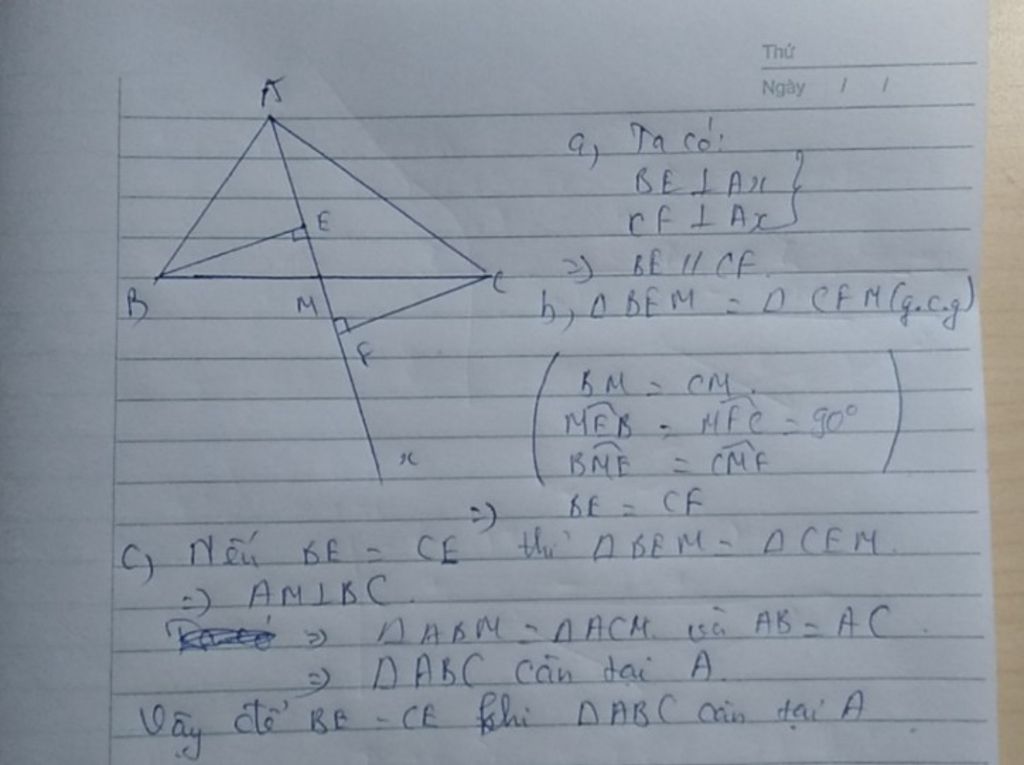 Thứ
Ngày / /
A
E
B
C
M
F
x
a, Ta có:
BE ⊥ Ax
CF ⊥ Ax }
=) BE // CF
b, Δ BEM = Δ CFM (g.c.g)
BM = CM
MEB = MFC = 90°
BME = CMF
=) BE = CF
C) Nếu BE = CE thì Δ BEM = Δ CEM
=) AM ⊥ BC
=) Δ ABM = Δ ACM và AB = AC
=) Δ ABC cân tại A
Vậy để BE = CE khi Δ ABC cân tại A